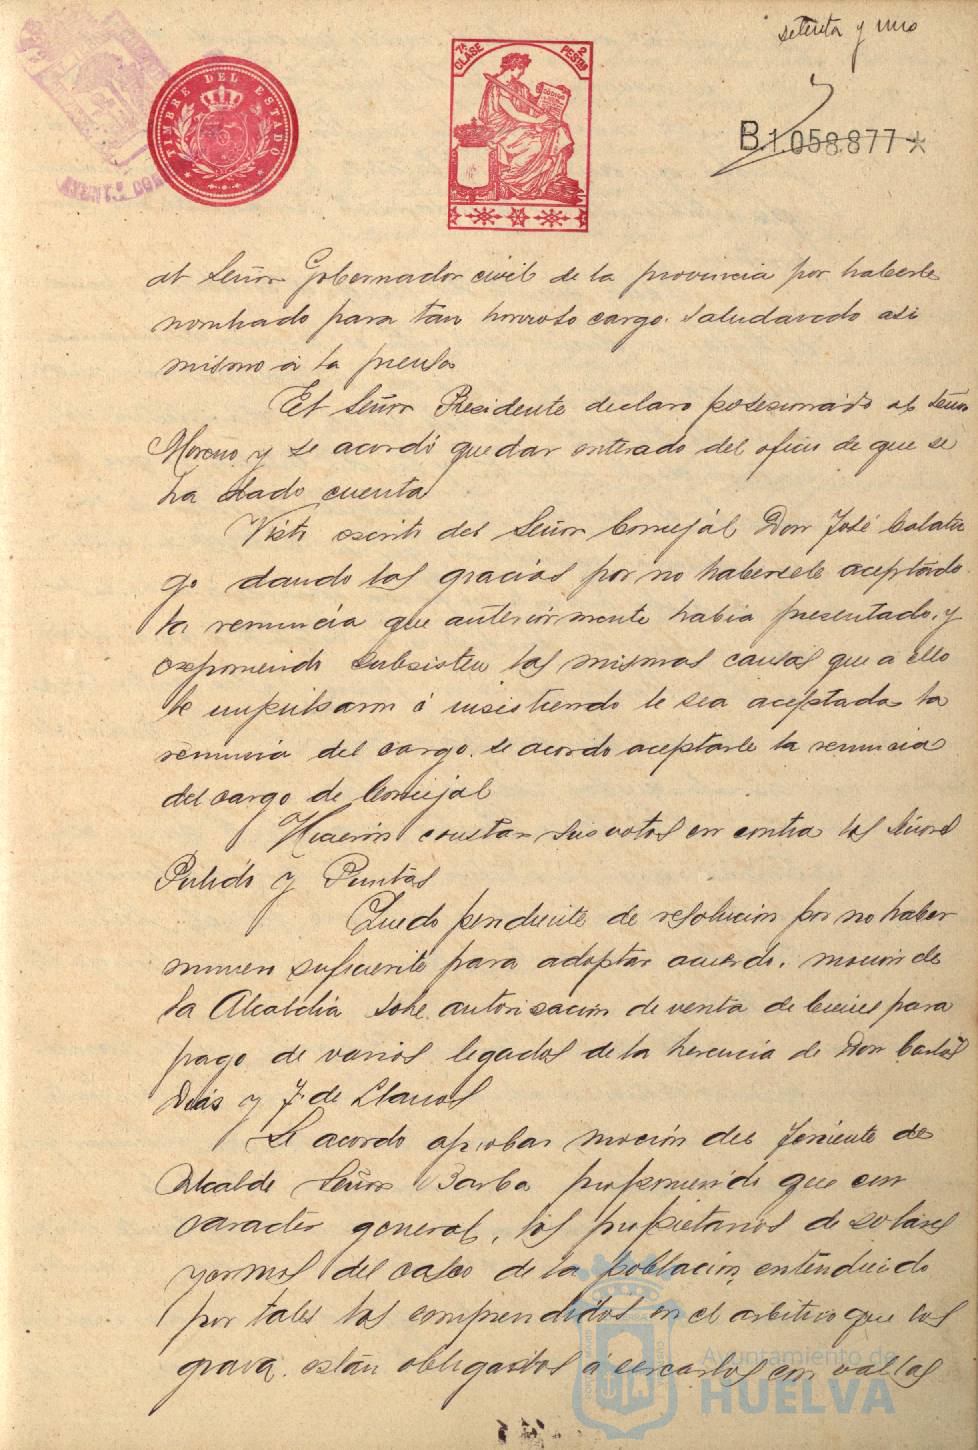 setenta y uno
TIMBRE DEL ESTADO
7ª CLASE
2 PESTAS
B.1.058.877 *
al Señor Gobernador civil de la provincia por haberle
nombrado para tan honroso cargo. Saludando asi
mismo á la prensa
El Señor Presidente declaro posesionado al Señor
Moreno y se acordó quedar enterado del oficio de que se
ha dado cuenta
Visto escrito del Señor Concejal Don José Calatri
go dando las gracias por no habersele aceptado
la renuncia que anteriormente habia presentado, y
exponiendo subsisten las mismas causas que a ello
le impulsaron é insistiendo le sea aceptada la
renuncia del cargo. se acordo aceptarle la renuncia
del cargo de Concejal
Hicieron constar sus votos en contra los Señores
Pulido y Puntas
Quedo pendiente de resolucion por no haber
numero suficiente para adoptar acuerdo. mocion de
la Alcaldia sobre autorizacion de venta de bienes para
pago de varios legados de la herencia de Don Carlos
Dias y F. de Llanos
Se acordo aprobar moción del Teniente de
Alcalde Señor Barba proponiendo que con
caracter general, los propietarios de solares
yermos del casco de la población, entendiendo
por tales los comprendidos en el arbitrio que los
grava. están obligados á cercarlos con vallas
Ayuntamiento de
HUELVA